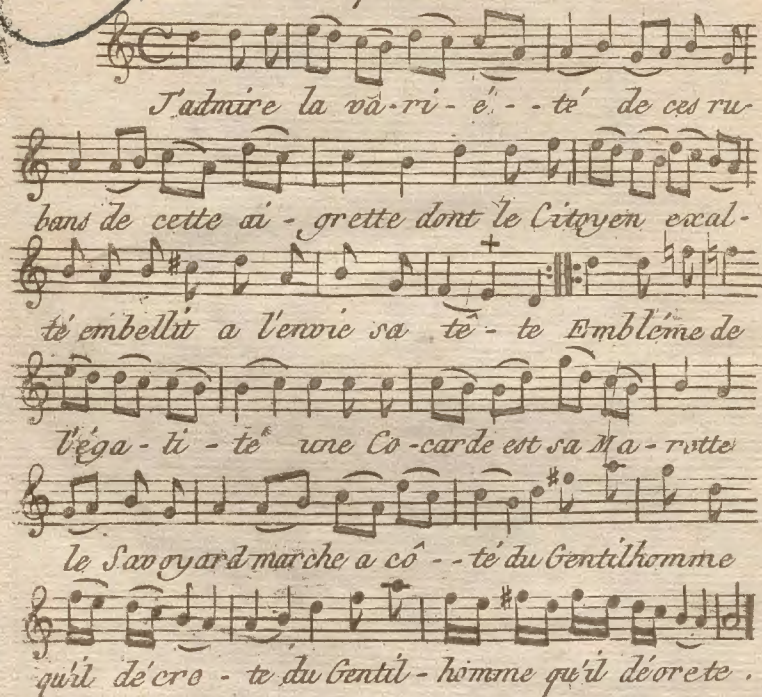 J'admire la va-ri-é--té de ces ru-
bans de cette ai-grette dont le Citoyen exal-
té embellit a l'envie sa tê-te Embléme de
l'éga-li-té une Co-carde est sa Ma-rotte
le Savoyard marche a cô--té du Gentilhomme
qu'il décro-te du Gentil-homme qu'il décrete.